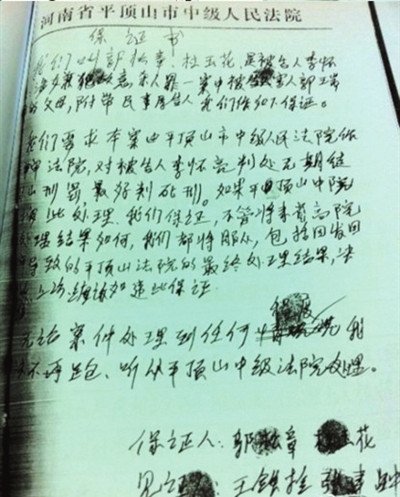 河南省平顶山市中级人民法院
保证书
我们叫郭松章、杜玉花，是被告人李怀
亮故意杀人罪一案中被害人郭
的父母，附带民事原告人，我们作如下保证。
我们要求本案由平顶山市中级人民法院
审法院，对被告人李怀亮判处无期徒
刑罚，最好判死刑。如果平顶山中院
此处理，我们保证，不管将来高院
处理结果如何，我们都将服从，包括因发回
导致的平顶山法院的最终处理结果，决
上访，如违此保证
无论案件处理到任何
不再 听从平顶山中级法院处理。
保证人：郭松章 花
见证人：王铁拴 张